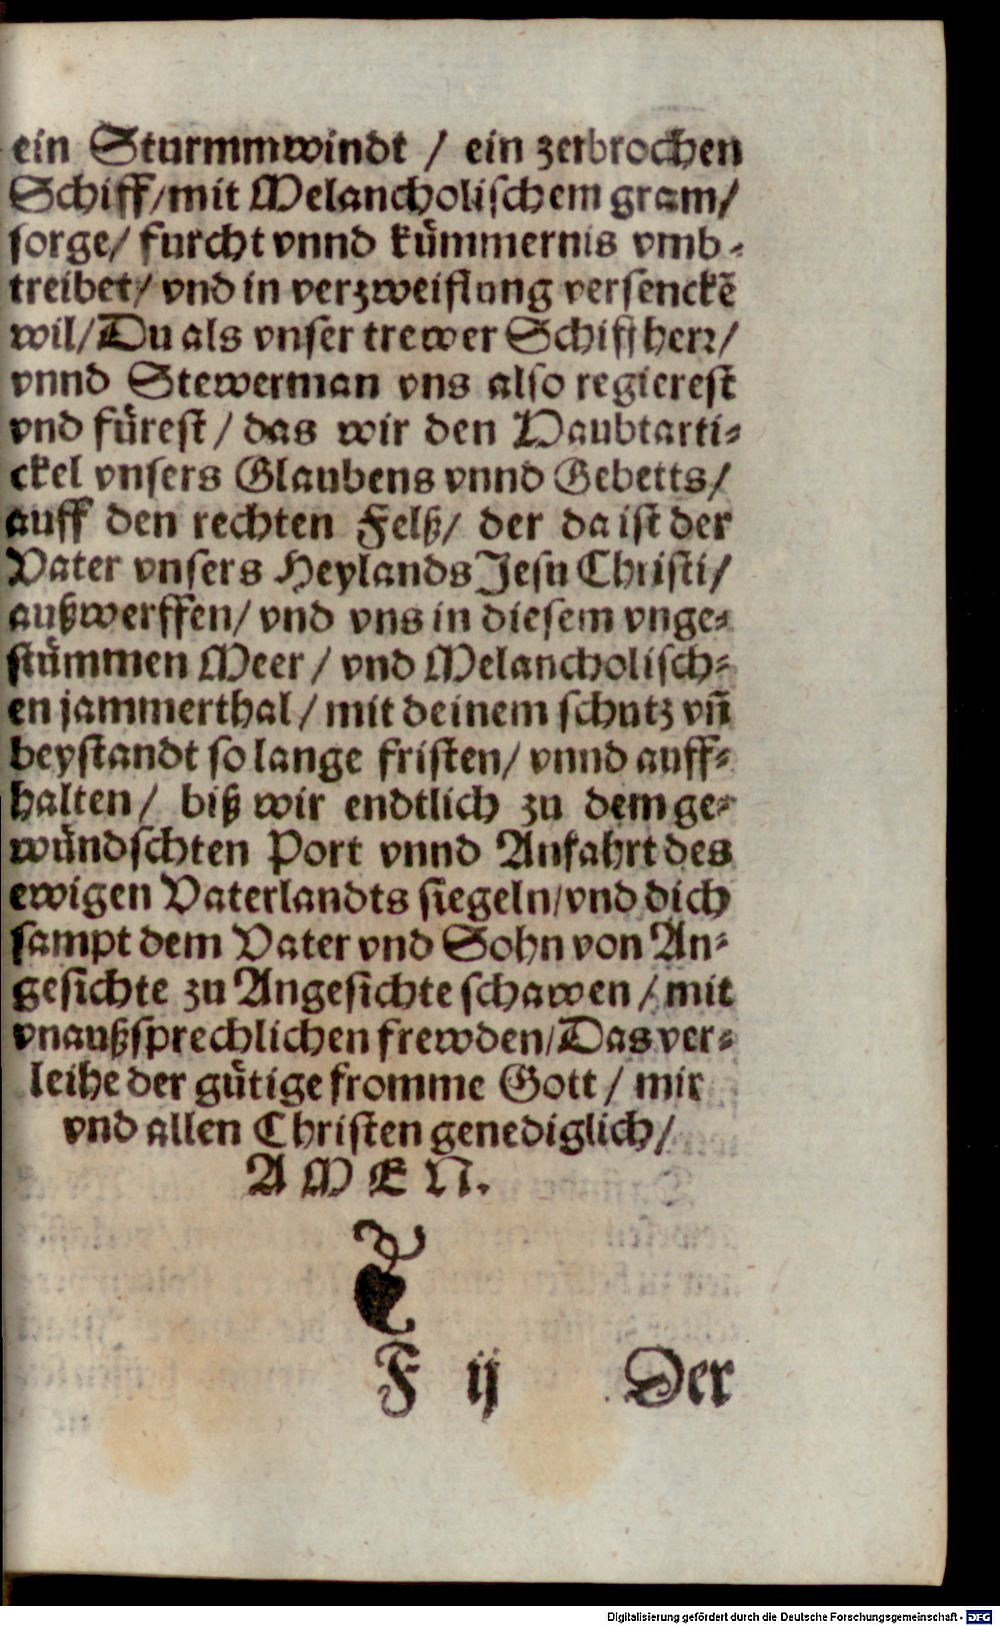 ein Sturmmwindt / ein zerbrochen
Schiff/mit Melancholischem gram/
sorge/ furcht vnnd kümmernis vmb-
treibet/ vnd in verzweiflung versenckē
wil/Du als vnser trewer Schiffherr/
vnnd Stewerman vns also regierest
vnd fürest / das wir den Haubtarti-
ckel vnsers Glaubens vnnd Gebetts/
auff den rechten Felß/ der da ist der
Vater vnsers Heylands Jesu Christi/
außwerffen/ vnd vns in diesem vnge-
stümmen Meer / vnd Melancholisch-
en jammerthal / mit deinem schutz vn̄
beystandt so lange fristen/ vnnd auff-
halten/ biß wir endtlich zu dem ge-
wündschten Port vnnd Anfahrt des
ewigen Vaterlandts siegeln/vnd dich
sampt dem Vater vnd Sohn von An-
gesichte zu Angesichte schawen / mit
vnaußsprechlichen frewden/Das ver-
leihe der gütige fromme Gott / mir
vnd allen Christen genediglich/
AMEN.
F ij Der
Digitalisierung gefördert durch die Deutsche Forschungsgemeinschaft - DFG